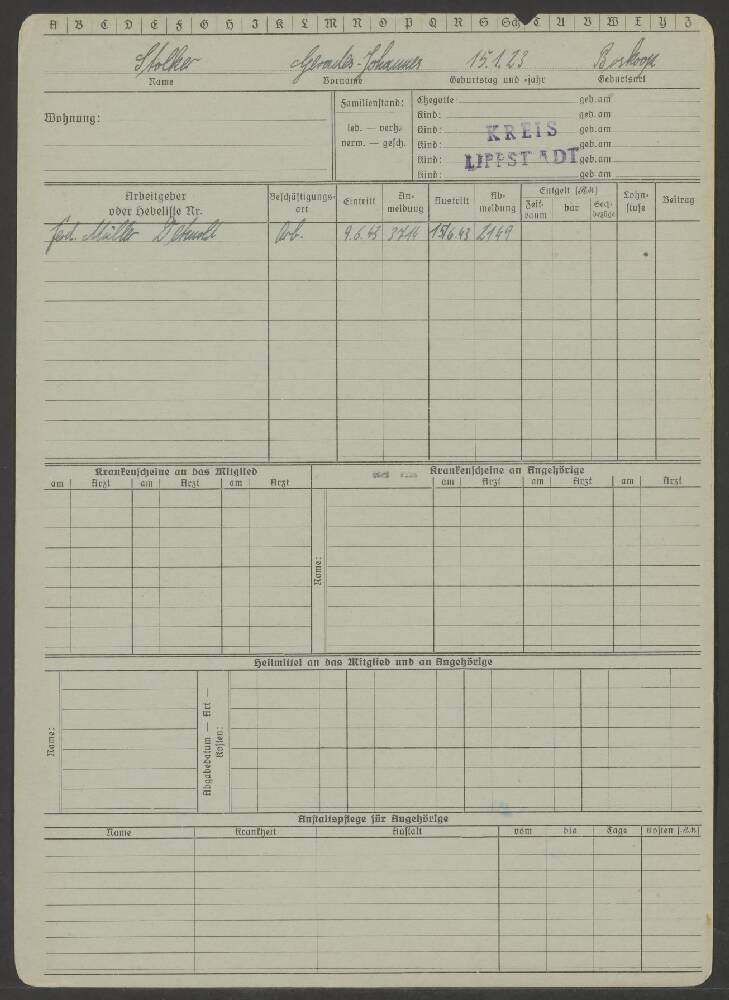 A B C D E F G H I K L M N O P Q R S Sch T U V W X Y Z
Stolker Gerardus-Johannes 15.1.23 Boskoop
Name Vorname Geburtstag und -jahr Geburtsort
Wohnung:
Familienstand:
led. — verh.
verw. — gesch.
Ehegatte: geb. am
Kind: geb. am
Kind: geb. am
Kind: geb. am
Kind: geb. am
Kind: geb. am
KREIS
LIPPSTADT
Arbeitgeber oder Hebeliste Nr. Beschäftigungsart Eintritt Anmeldung Austritt Abmeldung Entgelt (RM) Zeitraum bar Sachbezüge Lohnstufe Beitrag
Müller Detmold Arb. 9.6.43 3714 15/6.43 2149
Krankenscheine an das Mitglied Krankenscheine an Angehörige
am Arzt am Arzt am Arzt am Arzt am Arzt am Arzt
Name:
Heilmittel an das Mitglied und an Angehörige
Name:
Abgabedatum — Art —
Kosten:
Anstaltspflege für Angehörige
Name Krankheit Anstalt vom bis Tage Kosten (RM)